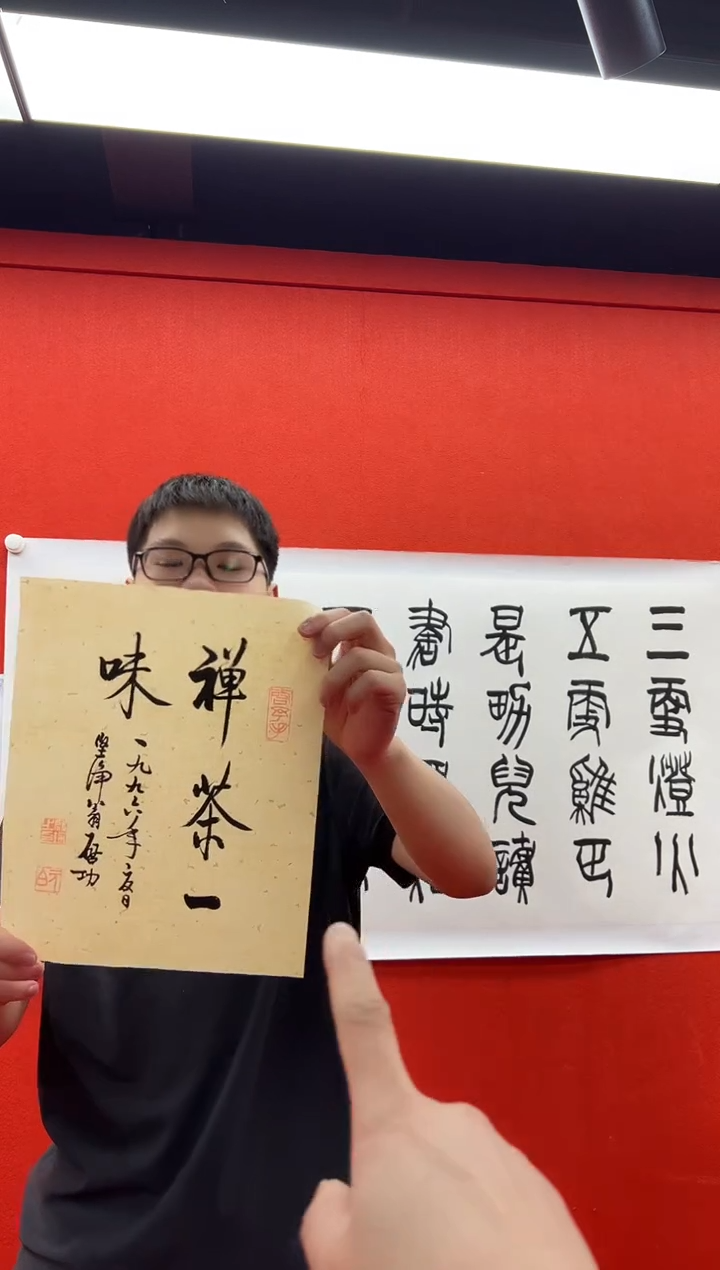 禅茶一
味
一九九六年夏日
坚净翁启功
三更燈火
五更雞正
是男兒讀
書時